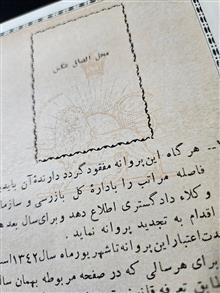 محل الصاق عکس
هر گاه این پروانه مفقود گردد دارندهٔ آن باید
فاصله مراتب را بادارهٔ کل بازرسی و سازما
و کلاء دادگستری اطلاع دهد و برای سال بعد
اقدام به تجدید پروانه نماید.
مدت اعتبار این پروانه تا شهریور ماه سال ۱۳۴۲ است
برای هر سالی که در صفحه مربوطه بهمان سال
تعرفه